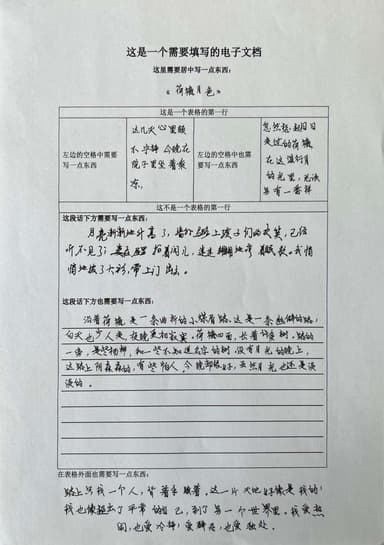 这是一个需要填写的电子文档
这里需要居中写一点东西：
《荷塘月色》
这是一个表格的第一行
左边的空格中需要
写一点东西
这几天心里颇
不宁静 今晚在
院子里坐着乘
凉，
左边的空格中也需
要写一点东西
忽然想起日日
走过的荷塘
在这满月
的光里，
另有一番样
这不是一个表格的第一行
这段话下方需要写一点东西：
月亮渐渐地升高了，墙外 上孩子们的欢笑，已经
听不见了；妻在 拍着闰儿，迷迷 地哼着眠歌。我悄
悄地披了大衫，带上门出去。
这段话下方也需要写一点东西：
沿着荷塘，是一条曲折的小煤屑路，这是一条幽僻的路；
白天也少人走，夜晚更加寂寞。荷塘四面，长着许多树。路的
一旁，是些杨柳，和一些不知道名字的树。没有月光的晚上，
这路上阴森森的，有些怕人。今晚却很好，虽然月光也还是淡
淡的。
在表格外面也需要写一点东西：
路上只我一个人，背着手踱着。这一片天地好像是我的；
我也像超出了平常的自己，到了另一个世界里。我爱热
闹，也爱冷静；爱群居，也爱独处。